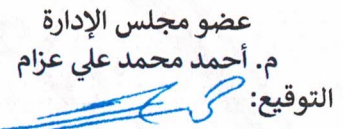 عضو مجلس الإدارة
م. أحمد محمد علي عزام
التوقيع: